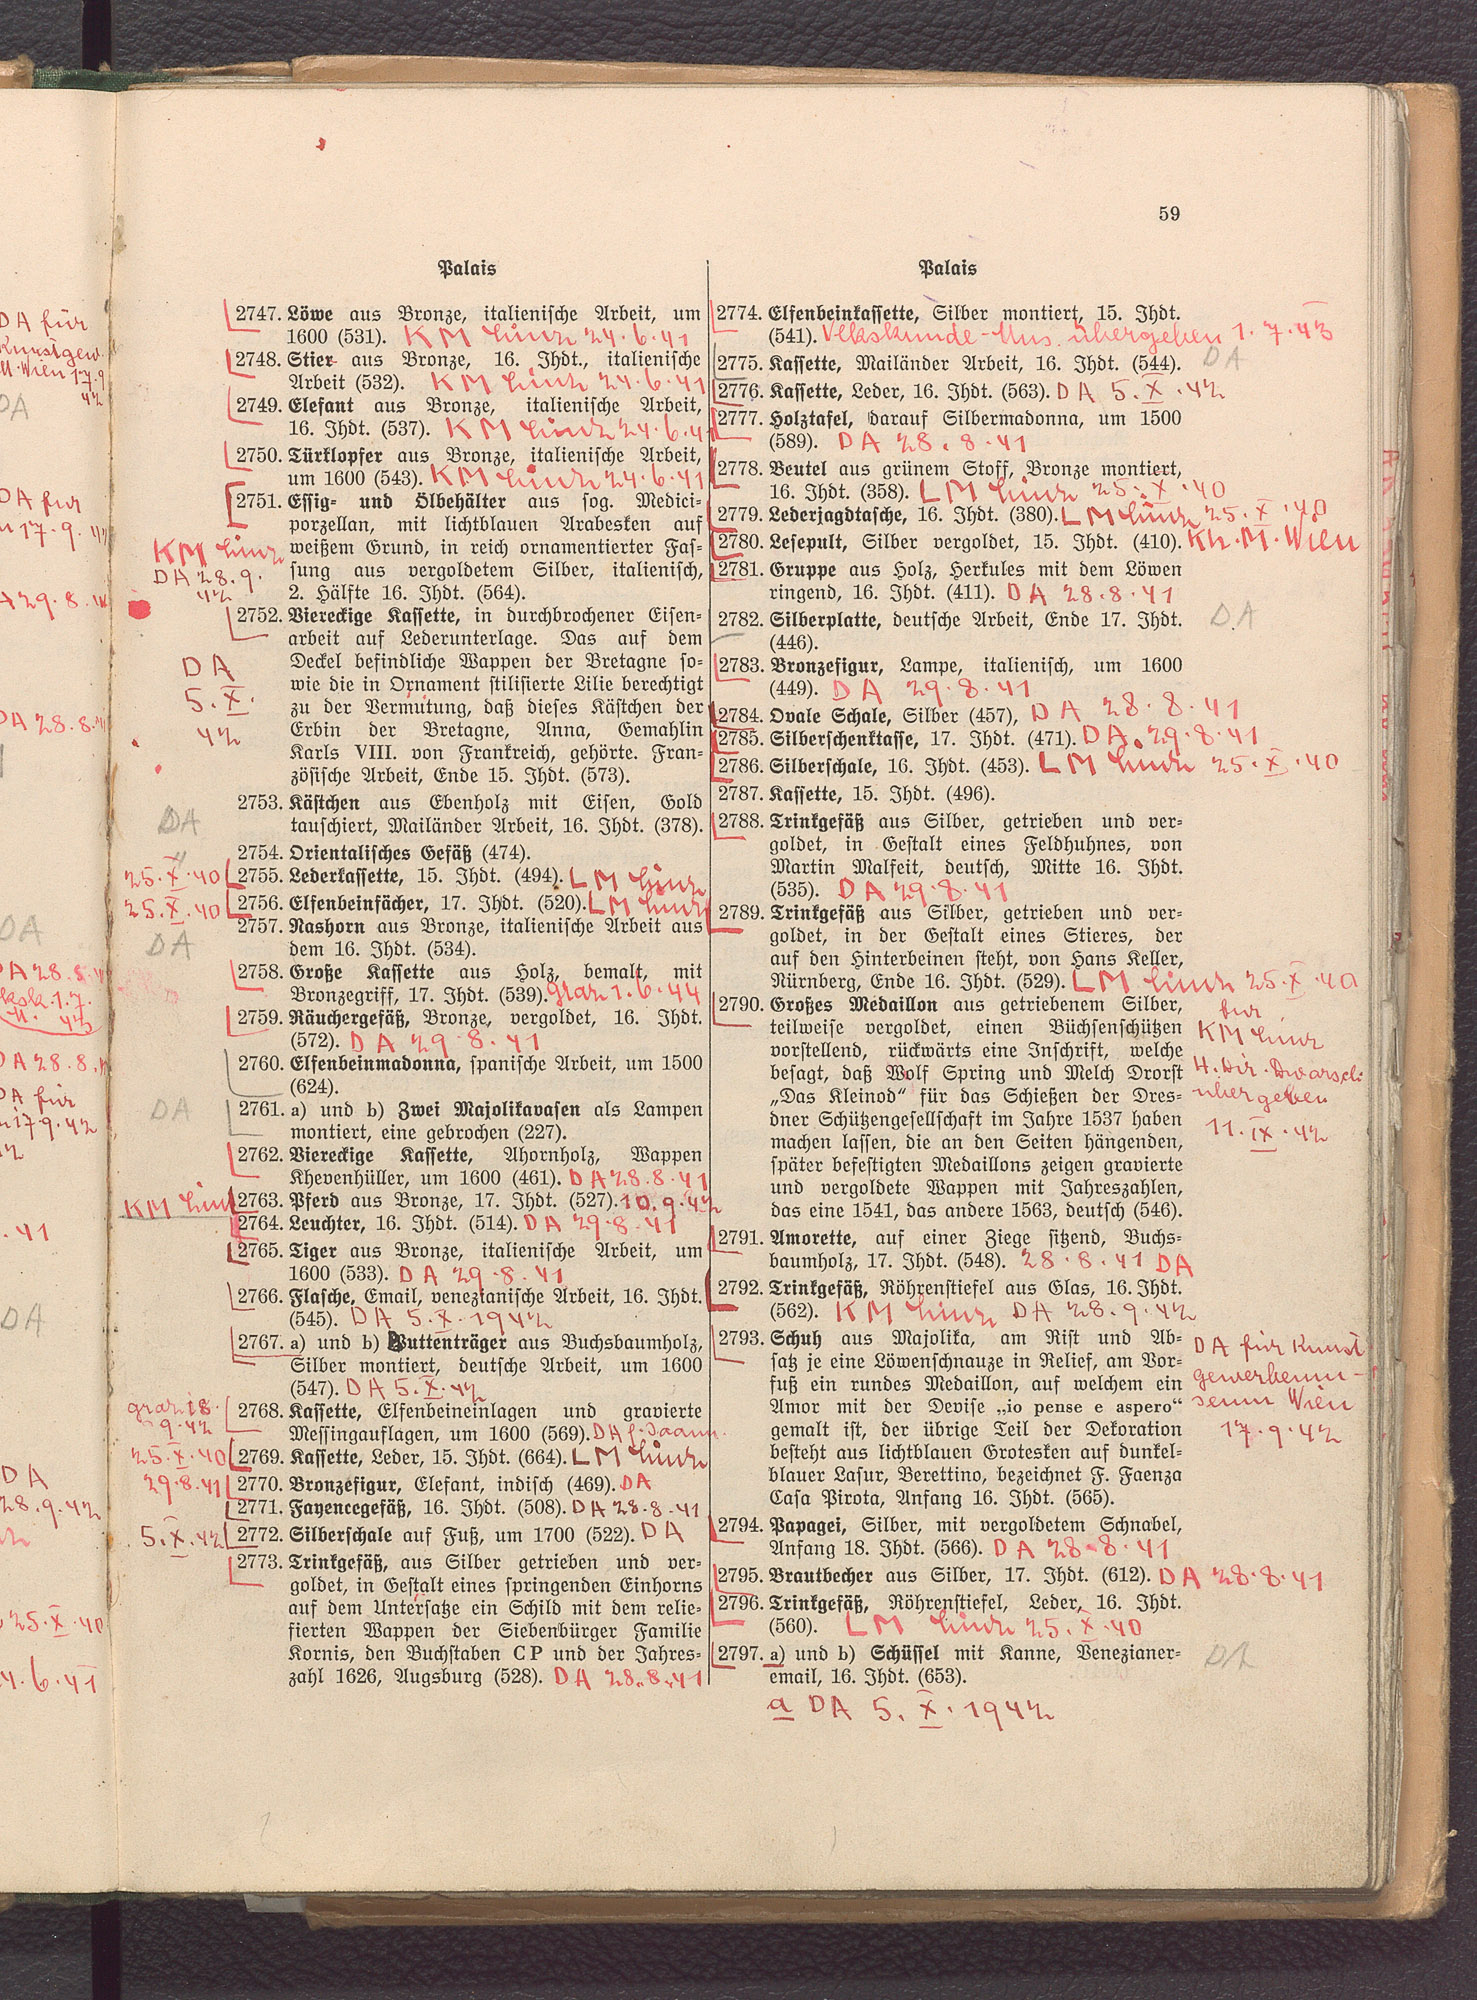 59
Palais
2747. Löwe aus Bronze, italienische Arbeit, um
1600 (531). KM Linz 24.6.41
2748. Stier aus Bronze, 16. Jhdt., italienische
Arbeit (532). KM Linz 24.6.41
2749. Elefant aus Bronze, italienische Arbeit,
16. Jhdt. (537). KM Linz 24.6.41
2750. Türklopfer aus Bronze, italienische Arbeit,
um 1600 (543). KM Linz 24.6.41
2751. Essig- und Ölbehälter aus sog. Medici-
porzellan, mit lichtblauen Arabesken auf
KM Linz weißem Grund, in reich ornamentierter Fas-
DA 28.9. sung aus vergoldetem Silber, italienisch,
42 2. Hälfte 16. Jhdt. (564).
2752. Viereckige Kassette, in durchbrochener Eisen-
arbeit auf Lederunterlage. Das auf dem
DA Deckel befindliche Wappen der Bretagne so-
5.X. wie die in Ornament stilisierte Lilie berechtigt
zu der Vermutung, daß dieses Kästchen der
42 Erbin der Bretagne, Anna, Gemahlin
Karls VIII. von Frankreich, gehörte. Fran-
zösische Arbeit, Ende 15. Jhdt. (573).
2753. Kästchen aus Ebenholz mit Eisen, Gold
DA tauschiert, Mailänder Arbeit, 16. Jhdt. (378).
2754. Orientalisches Gefäß (474).
25.X.40 2755. Lederkassette, 15. Jhdt. (494). LM Linz
25.X.40 2756. Elfenbeinfächer, 17. Jhdt. (520). LM Linz
2757. Nashorn aus Bronze, italienische Arbeit aus
DA dem 16. Jhdt. (534).
2758. Große Kassette aus Holz, bemalt, mit
Bronzegriff, 17. Jhdt. (539). Graz 1.6.44
2759. Räuchergefäß, Bronze, vergoldet, 16. Jhdt.
(572). DA 29.8.41
2760. Elfenbeinmadonna, spanische Arbeit, um 1500
(624).
DA 2761. a) und b) Zwei Majolikavasen als Lampen
montiert, eine gebrochen (227).
2762. Viereckige Kassette, Ahornholz, Wappen
Khevenhüller, um 1600 (461). DA 28.8.41
KM Linz 2763. Pferd aus Bronze, 17. Jhdt. (527). 10.9.42
2764. Leuchter, 16. Jhdt. (514). DA 29.8.41
2765. Tiger aus Bronze, italienische Arbeit, um
1600 (533). DA 29.8.41
2766. Flasche, Email, venezianische Arbeit, 16. Jhdt.
(545). DA 5.X.1942
2767. a) und b) Buttenträger aus Buchsbaumholz,
Silber montiert, deutsche Arbeit, um 1600
(547). DA 5.X.42
Graz 18. 2768. Kassette, Elfenbeineinlagen und gravierte
9.42 Messingauflagen, um 1600 (569). DA f.
25.X.40 2769. Kassette, Leder, 15. Jhdt. (664). LM Linz
29.8.41 2770. Bronzefigur, Elefant, indisch (469). DA
2771. Fayencegefäß, 16. Jhdt. (508). DA 28.8.41
5.X.42 2772. Silberschale auf Fuß, um 1700 (522). DA
2773. Trinkgefäß, aus Silber getrieben und ver-
goldet, in Gestalt eines springenden Einhorns
auf dem Untersatze ein Schild mit dem relie-
fierten Wappen der Siebenbürger Familie
Kornis, den Buchstaben CP und der Jahres-
zahl 1626, Augsburg (528). DA 28.8.41
Palais
2774. Elfenbeinkassette, Silber montiert, 15. Jhdt.
(541). Volkskunde-Mus. übergeben 1.7.43
2775. Kassette, Mailänder Arbeit, 16. Jhdt. (544). DA
2776. Kassette, Leder, 16. Jhdt. (563). DA 5.X.42
2777. Holztafel, darauf Silbermadonna, um 1500
(589). DA 28.8.41
2778. Beutel aus grünem Stoff, Bronze montiert,
16. Jhdt. (358). LM Linz 25.X.40
2779. Lederjagdtasche, 16. Jhdt. (380). LM Linz 25.X.40
2780. Lesepult, Silber vergoldet, 15. Jhdt. (410). Kh.M.Wien
2781. Gruppe aus Holz, Herkules mit dem Löwen
ringend, 16. Jhdt. (411). DA 28.8.41
2782. Silberplatte, deutsche Arbeit, Ende 17. Jhdt. DA
(446).
2783. Bronzefigur, Lampe, italienisch, um 1600
(449). DA 29.8.41
2784. Ovale Schale, Silber (457), DA 28.8.41
2785. Silberschenktasse, 17. Jhdt. (471). DA 29.8.41
2786. Silberschale, 16. Jhdt. (453). LM Linz 25.X.40
2787. Kassette, 15. Jhdt. (496).
2788. Trinkgefäß aus Silber, getrieben und ver-
goldet, in Gestalt eines Feldhuhnes, von
Martin Malfeit, deutsch, Mitte 16. Jhdt.
(535). DA 29.8.41
2789. Trinkgefäß aus Silber, getrieben und ver-
goldet, in der Gestalt eines Stieres, der
auf den Hinterbeinen steht, von Hans Keller,
Nürnberg, Ende 16. Jhdt. (529). LM Linz 25.X.40
2790. Großes Medaillon aus getriebenem Silber, für
teilweise vergoldet, einen Büchsenschützen KM Linz
vorstellend, rückwärts eine Inschrift, welche
besagt, daß Wolf Spring und Melch Drorst H. Dir.
„Das Kleinod“ für das Schießen der Dres- übergeben
dner Schützengesellschaft im Jahre 1537 haben 11.IX.42
machen lassen, die an den Seiten hängenden,
später befestigten Medaillons zeigen gravierte
und vergoldete Wappen mit Jahreszahlen,
das eine 1541, das andere 1563, deutsch (546).
2791. Amorette, auf einer Ziege sitzend, Buchs-
baumholz, 17. Jhdt. (548). 28.8.41 DA
2792. Trinkgefäß, Röhrenstiefel aus Glas, 16. Jhdt.
(562). KM Linz DA 28.9.42
2793. Schuh aus Majolika, am Rist und Ab- DA für Kunst
satz je eine Löwenschnauze in Relief, am Vor- gewerbemu-
fuß ein rundes Medaillon, auf welchem ein seum Wien
Amor mit der Devise „io pense e aspero“ 17.9.42
gemalt ist, der übrige Teil der Dekoration
besteht aus lichtblauen Grotesken auf dunkel-
blauer Lasur, Berettino, bezeichnet F. Faenza
Casa Pirota, Anfang 16. Jhdt. (565).
2794. Papagei, Silber, mit vergoldetem Schnabel,
Anfang 18. Jhdt. (566). DA 28.8.41
2795. Brautbecher aus Silber, 17. Jhdt. (612). DA 28.8.41
2796. Trinkgefäß, Röhrenstiefel, Leder, 16. Jhdt.
(560). LM Linz 25.X.40
2797. a) und b) Schüssel mit Kanne, Venezianer- DA
email, 16. Jhdt. (653).
a DA 5.X.1942